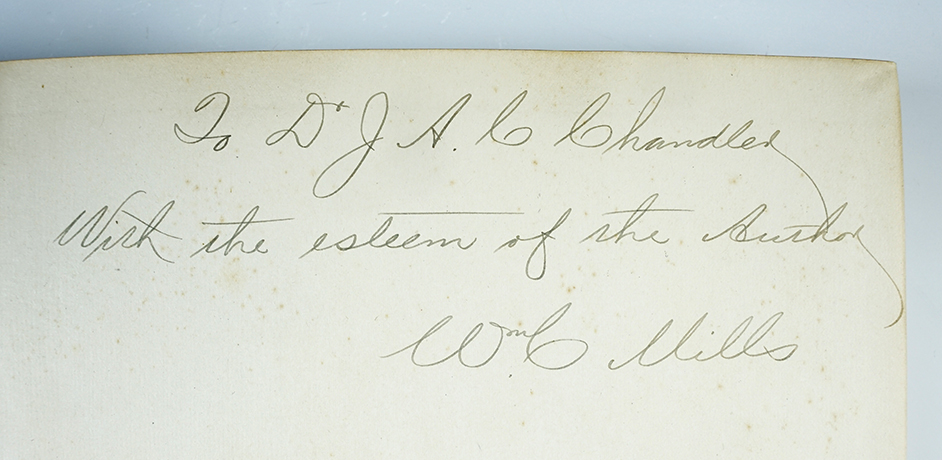 To Dr J. A. C Chandler
With the esteem of the Author
Wm C Mills